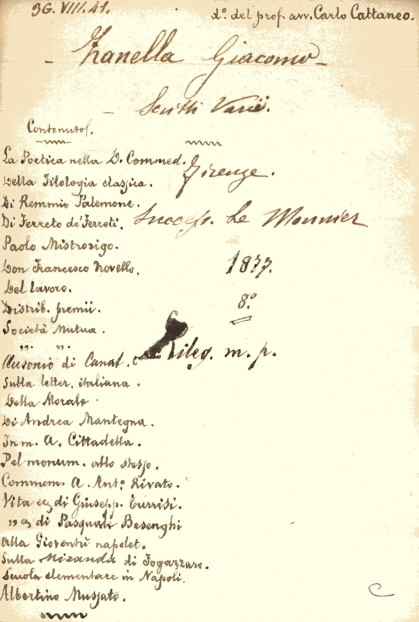 36. VIII. 41.
d.° del prof. avv. Carlo Cattaneo.
- Zanella Giacomo -
- Scritti Varii.
Contenutos.
La Poetica nella D. Commed.
Della Filologia classica.
Firenze.
Di Remmio Palemone.
Di Ferreto de' Ferreti.
Success. Le Monnier
Paolo Mistrorigo.
Don Francesco Novello.
1877.
Del lavoro.
Distrib. premii.
8.°
Società Mutua.
" "
Rileg. m. p.
Ausonio di Canal.
Sulla letter. italiana.
Della Morale.
Di Andrea Mantegna.
In m. A. Cittadella.
Pel monum. allo stesso.
Commem. A. Ant.° Rivato.
Vita di Giusepp. Turrisi.
" di Pasquale Besenghi
Alla Gioventù napolet.
Sulla Miranda di Fogazzaro.
Scuola elementare in Napoli.
Albertino Mussato.
C